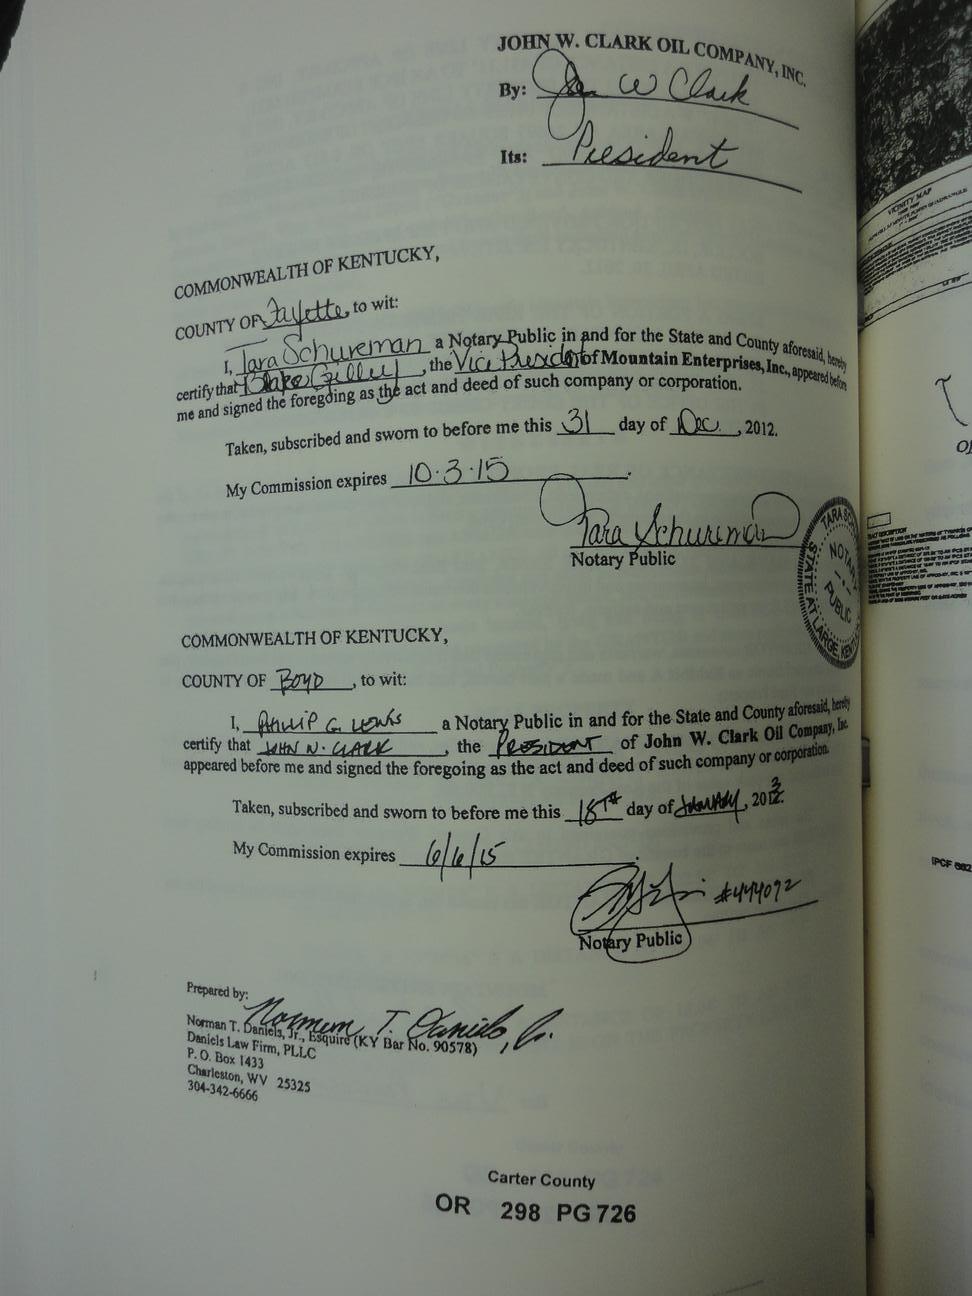 JOHN W. CLARK OIL COMPANY, INC.
By: John W Clark
Its: President
COMMONWEALTH OF KENTUCKY,
COUNTY OF Fayette, to wit:
I, Tara Schureman a Notary Public in and for the State and County aforesaid, hereby
certify that Blake Gilley, the Vice President of Mountain Enterprises, Inc., appeared before
me and signed the foregoing as the act and deed of such company or corporation.
Taken, subscribed and sworn to before me this 31 day of Dec., 2012.
My Commission expires 10·3·15.
Tara Schureman
Notary Public
TARA SC
NOTARY
PUBLIC
STATE AT LARGE, KENT
COMMONWEALTH OF KENTUCKY,
COUNTY OF BOYD, to wit:
I, PHILIP G. LEWIS a Notary Public in and for the State and County aforesaid, hereby
certify that JOHN W. CLARK, the PRESIDENT of John W. Clark Oil Company, Inc.
appeared before me and signed the foregoing as the act and deed of such company or corporation.
Taken, subscribed and sworn to before me this 18TH day of JANUARY, 2013.
My Commission expires 6/6/15.
#444092
Notary Public
Prepared by:
Norman T. Daniels, Jr.
Norman T. Daniels, Jr., Esquire (KY Bar No. 90578)
Daniels Law Firm, PLLC
P. O. Box 1433
Charleston, WV 25325
304-342-6666
Carter County
OR 298 PG 726
VICINITY MAP